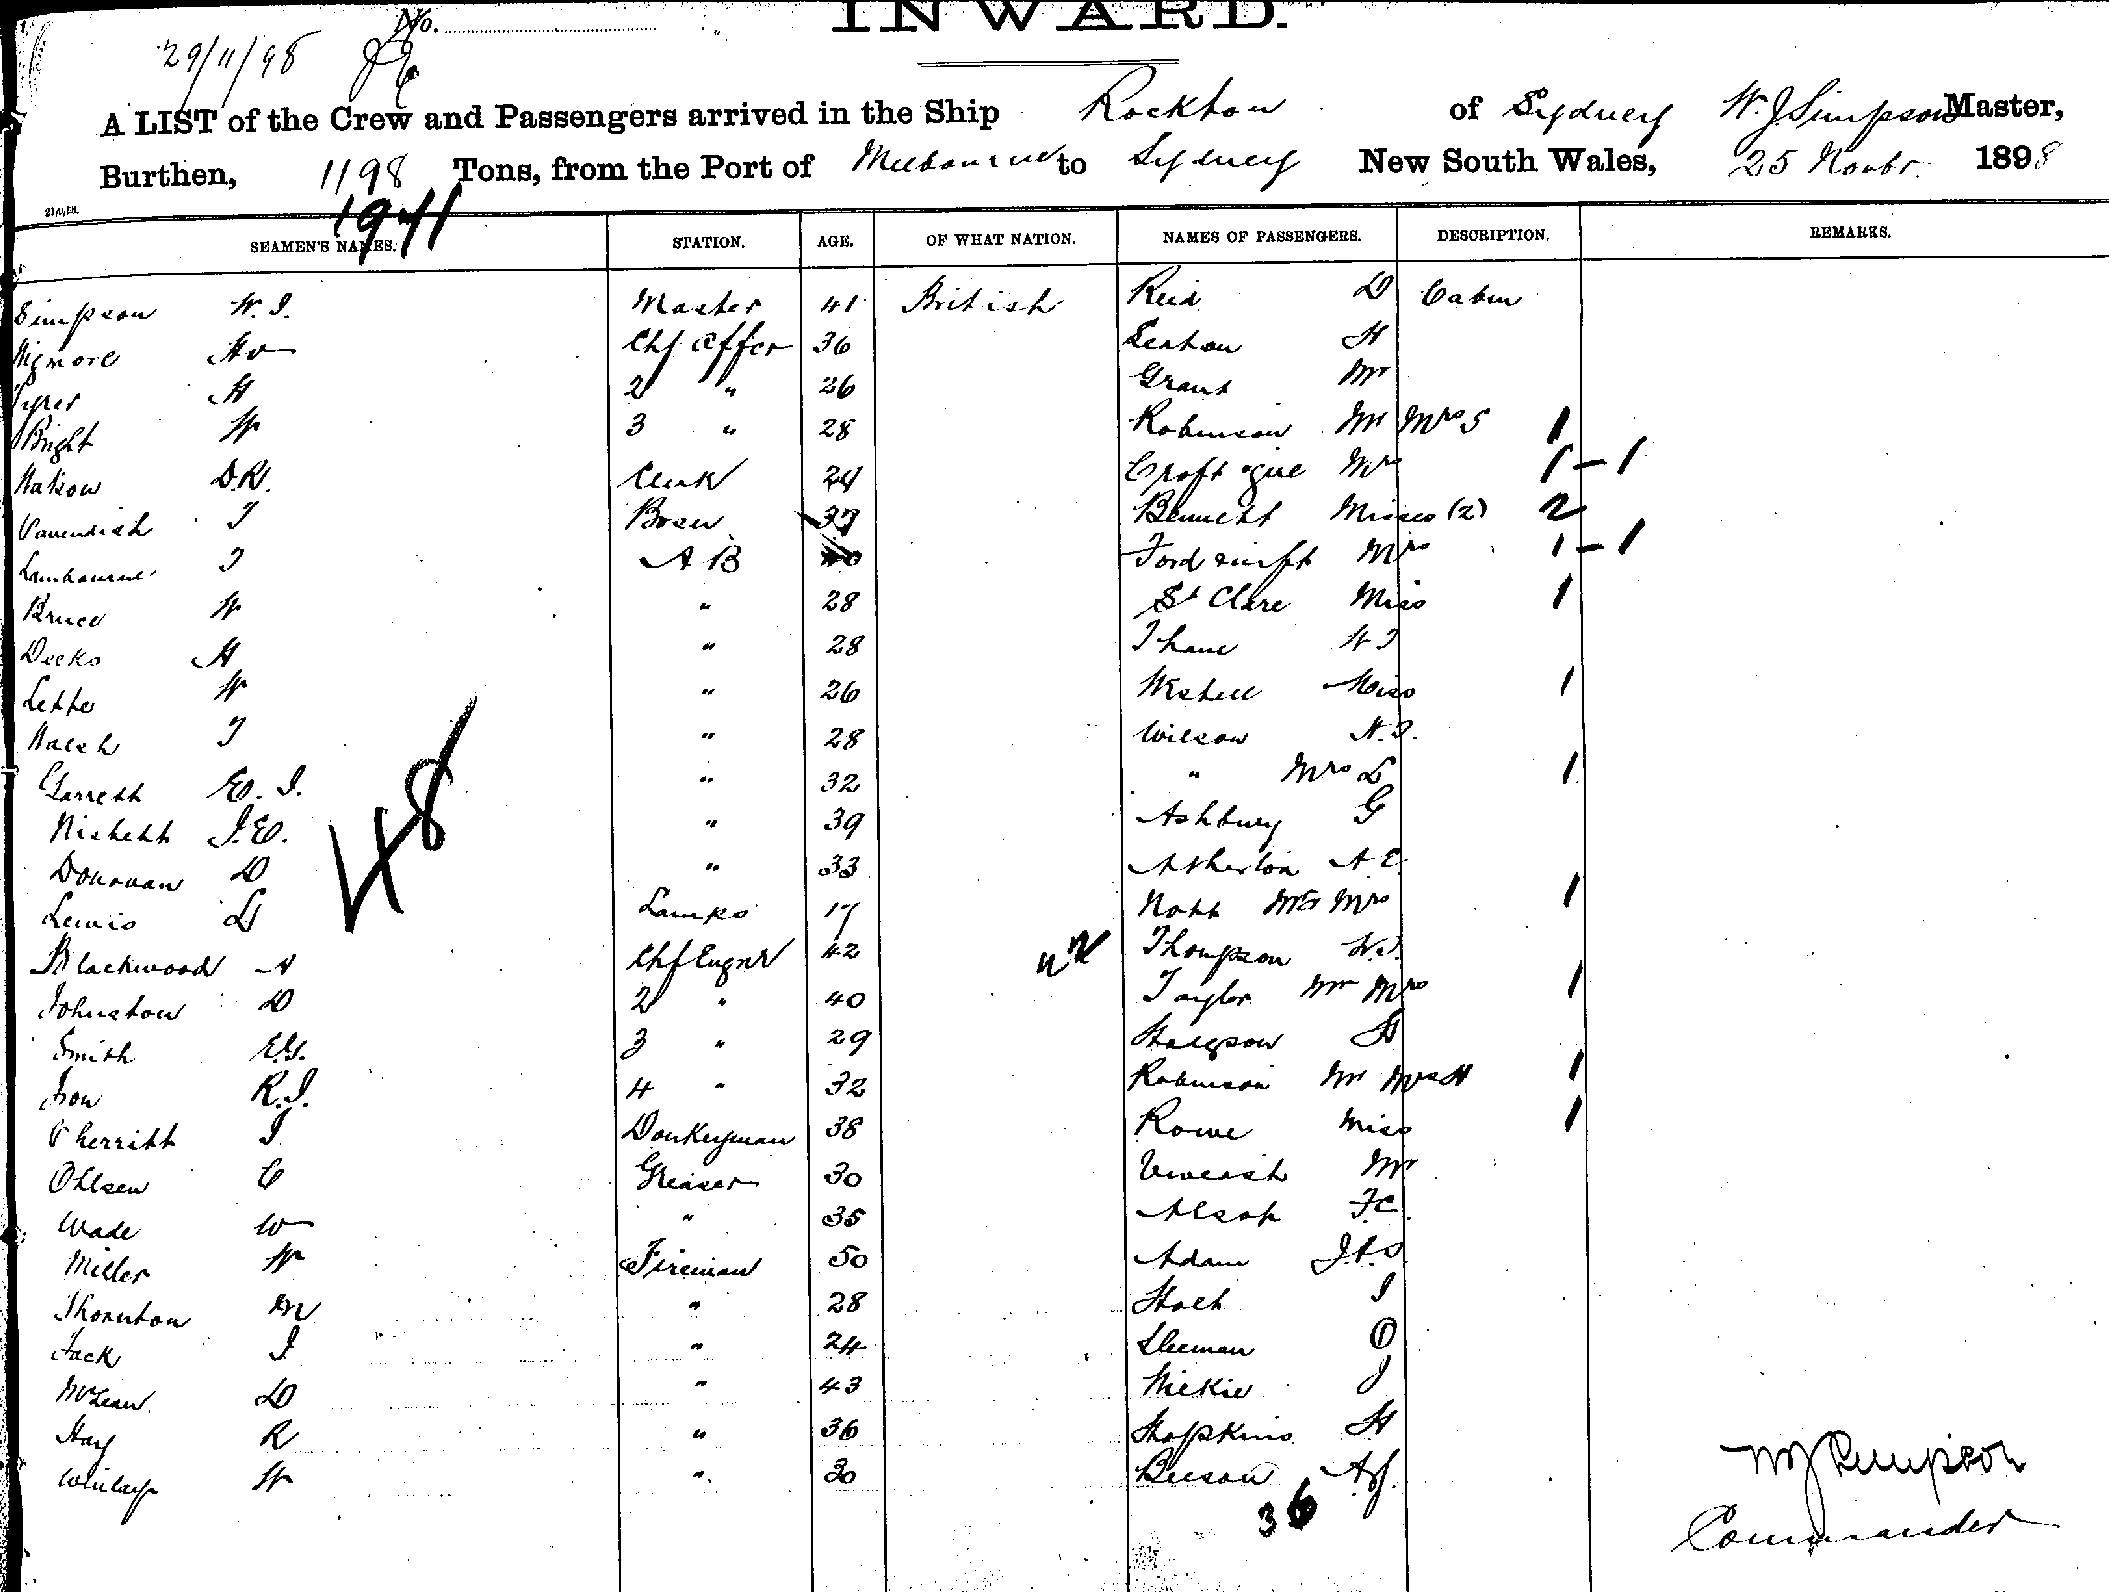 No.
INWARD.
29/11/98
A LIST of the Crew and Passengers arrived in the Ship Rockton of Sydney W. J Simpson Master,
Burthen, 1198 Tons, from the Port of Melbourne to Sydney New South Wales, 25 Novbr. 1898
1941
SEAMEN'S NAMES. STATION. AGE. OF WHAT NATION. NAMES OF PASSENGERS. DESCRIPTION. REMARKS.
Simpson W. J. Master 41 British Reid D Cabin
Wigmore Chf Offcr 36 Seaton H
H 2 " 26 Grant Mr
Bright W 3 " 28 Robinson Mr Mrs S 1
Watson D.R. Clerk 24 Croft Mrs 1 - 1
Cavendish J Bosn 37 Bennett Misses (2) 2
Lambourne J A B Ford & inft Mrs 1 - 1
Bruce W " 28 St Clare Miss 1
Deeks H " 28 Thane
W " 26 Miss 1
Walsh J " 28 Wilson
Garrett E. J. " 32 " Mrs L 1
Nisbett J. E. " 39 Ashbury G
Donovan D " 33 Atherton A E
48
Lewis L Lamps 17 Nott Mr Mrs 1
Blackwood A Chf Engnr 42 Thompson W. J.
Johnston D 2 " 40 Taylor Mr Mrs 1
Smith E.G. 3 " 29 H
Iron R. J. 4 " 32 Robinson Mr Mrs H 1
Cherritt J Donkeyman 38 Rowe Miss 1
Ohlsen C Greaser 30 Viveash Mr
Wade W " 35 Alsop F.C.
Miller W Fireman 50 Adam
Thornton M " 28 Holt J
Jack J " 24 Sleeman O
McLean D " 43 Mickie J
Hay R " 36 Hopkins H
W " 30 Beeson
36
W J Simpson
Commander